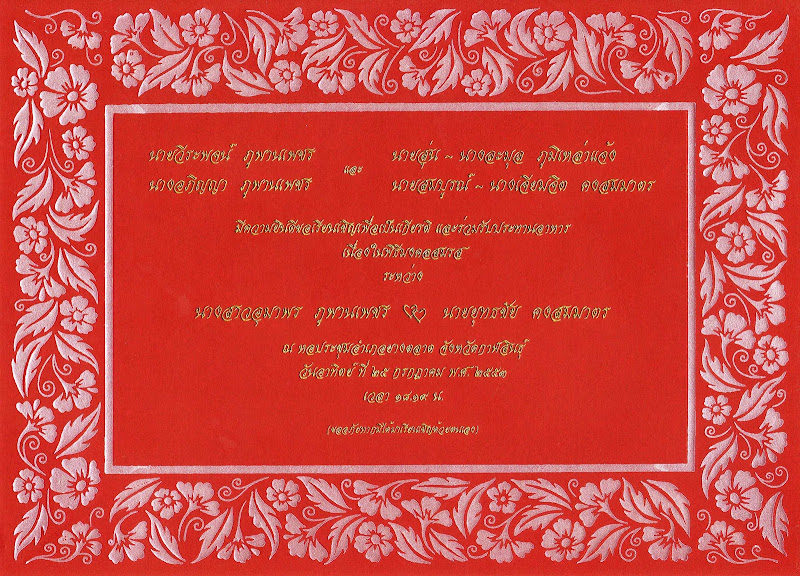 นายวีระพจน์ ภูพานเพชร
นางอภิญญา ภูพานเพชร
และ
นายสุ่น ~ นางละมุล ภูมิเหล่าแจ้ง
นายสมบูรณ์ ~ นางเจียมจิต คงสมมาตร
มีความยินดีขอเรียนเชิญเพื่อเป็นเกียรติ และร่วมรับประทานอาหาร
เนื่องในพิธีมงคลสมรส
ระหว่าง
นางสาวอุมาพร ภูพานเพชร นายยุทธชัย คงสมมาตร
ณ หอประชุมอำเภอยางตลาด จังหวัดกาฬสินธุ์
วันอาทิตย์ ที่ ๒๕ กรกฎาคม พ.ศ. ๒๕๕๓
เวลา ๑๘.๑๙ น.
(ขออภัยหากมิได้มาเรียนเชิญด้วยตนเอง)